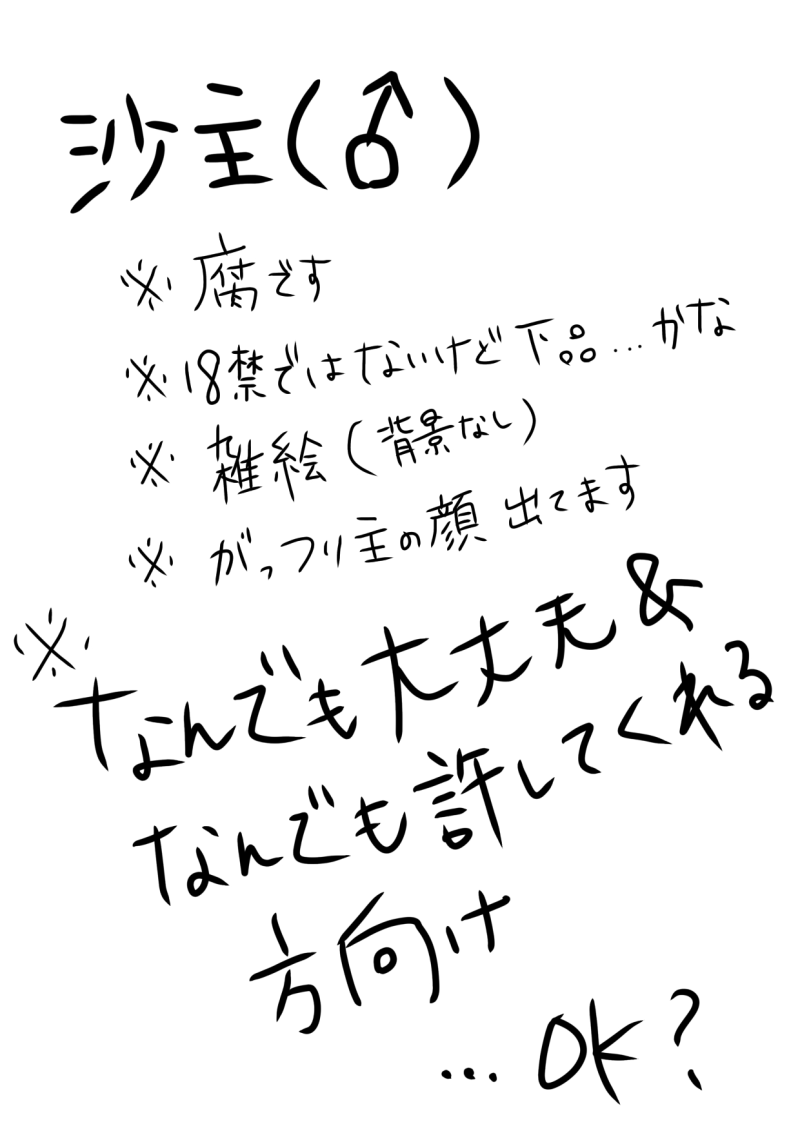 沙主(♂)
※腐です
※18禁ではないけど下品…かな
※雑絵(背景なし)
※がっつり主の顔出てます
※なんでも大丈夫&
なんでも許してくれる
方向け
…OK?